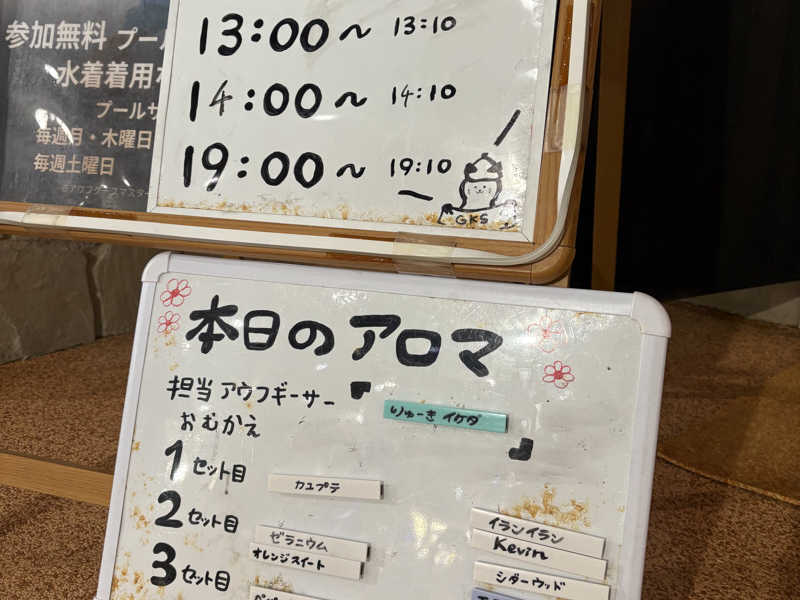 参加無料 プー
水着着用
プールサ
毎週月・木曜日
毎週土曜日
©アウフグースマスター
13:00～ 13:10
14:00～ 14:10
19:00～ 19:10
GKS
本日のアロマ
担当 アウフギーサー
『りゅーき イケダ』
おむかえ
1セット目
カユプテ
2セット目
イランイラン
ゼラニウム
Kevin
オレンジスイート
3セット目
シダーウッド